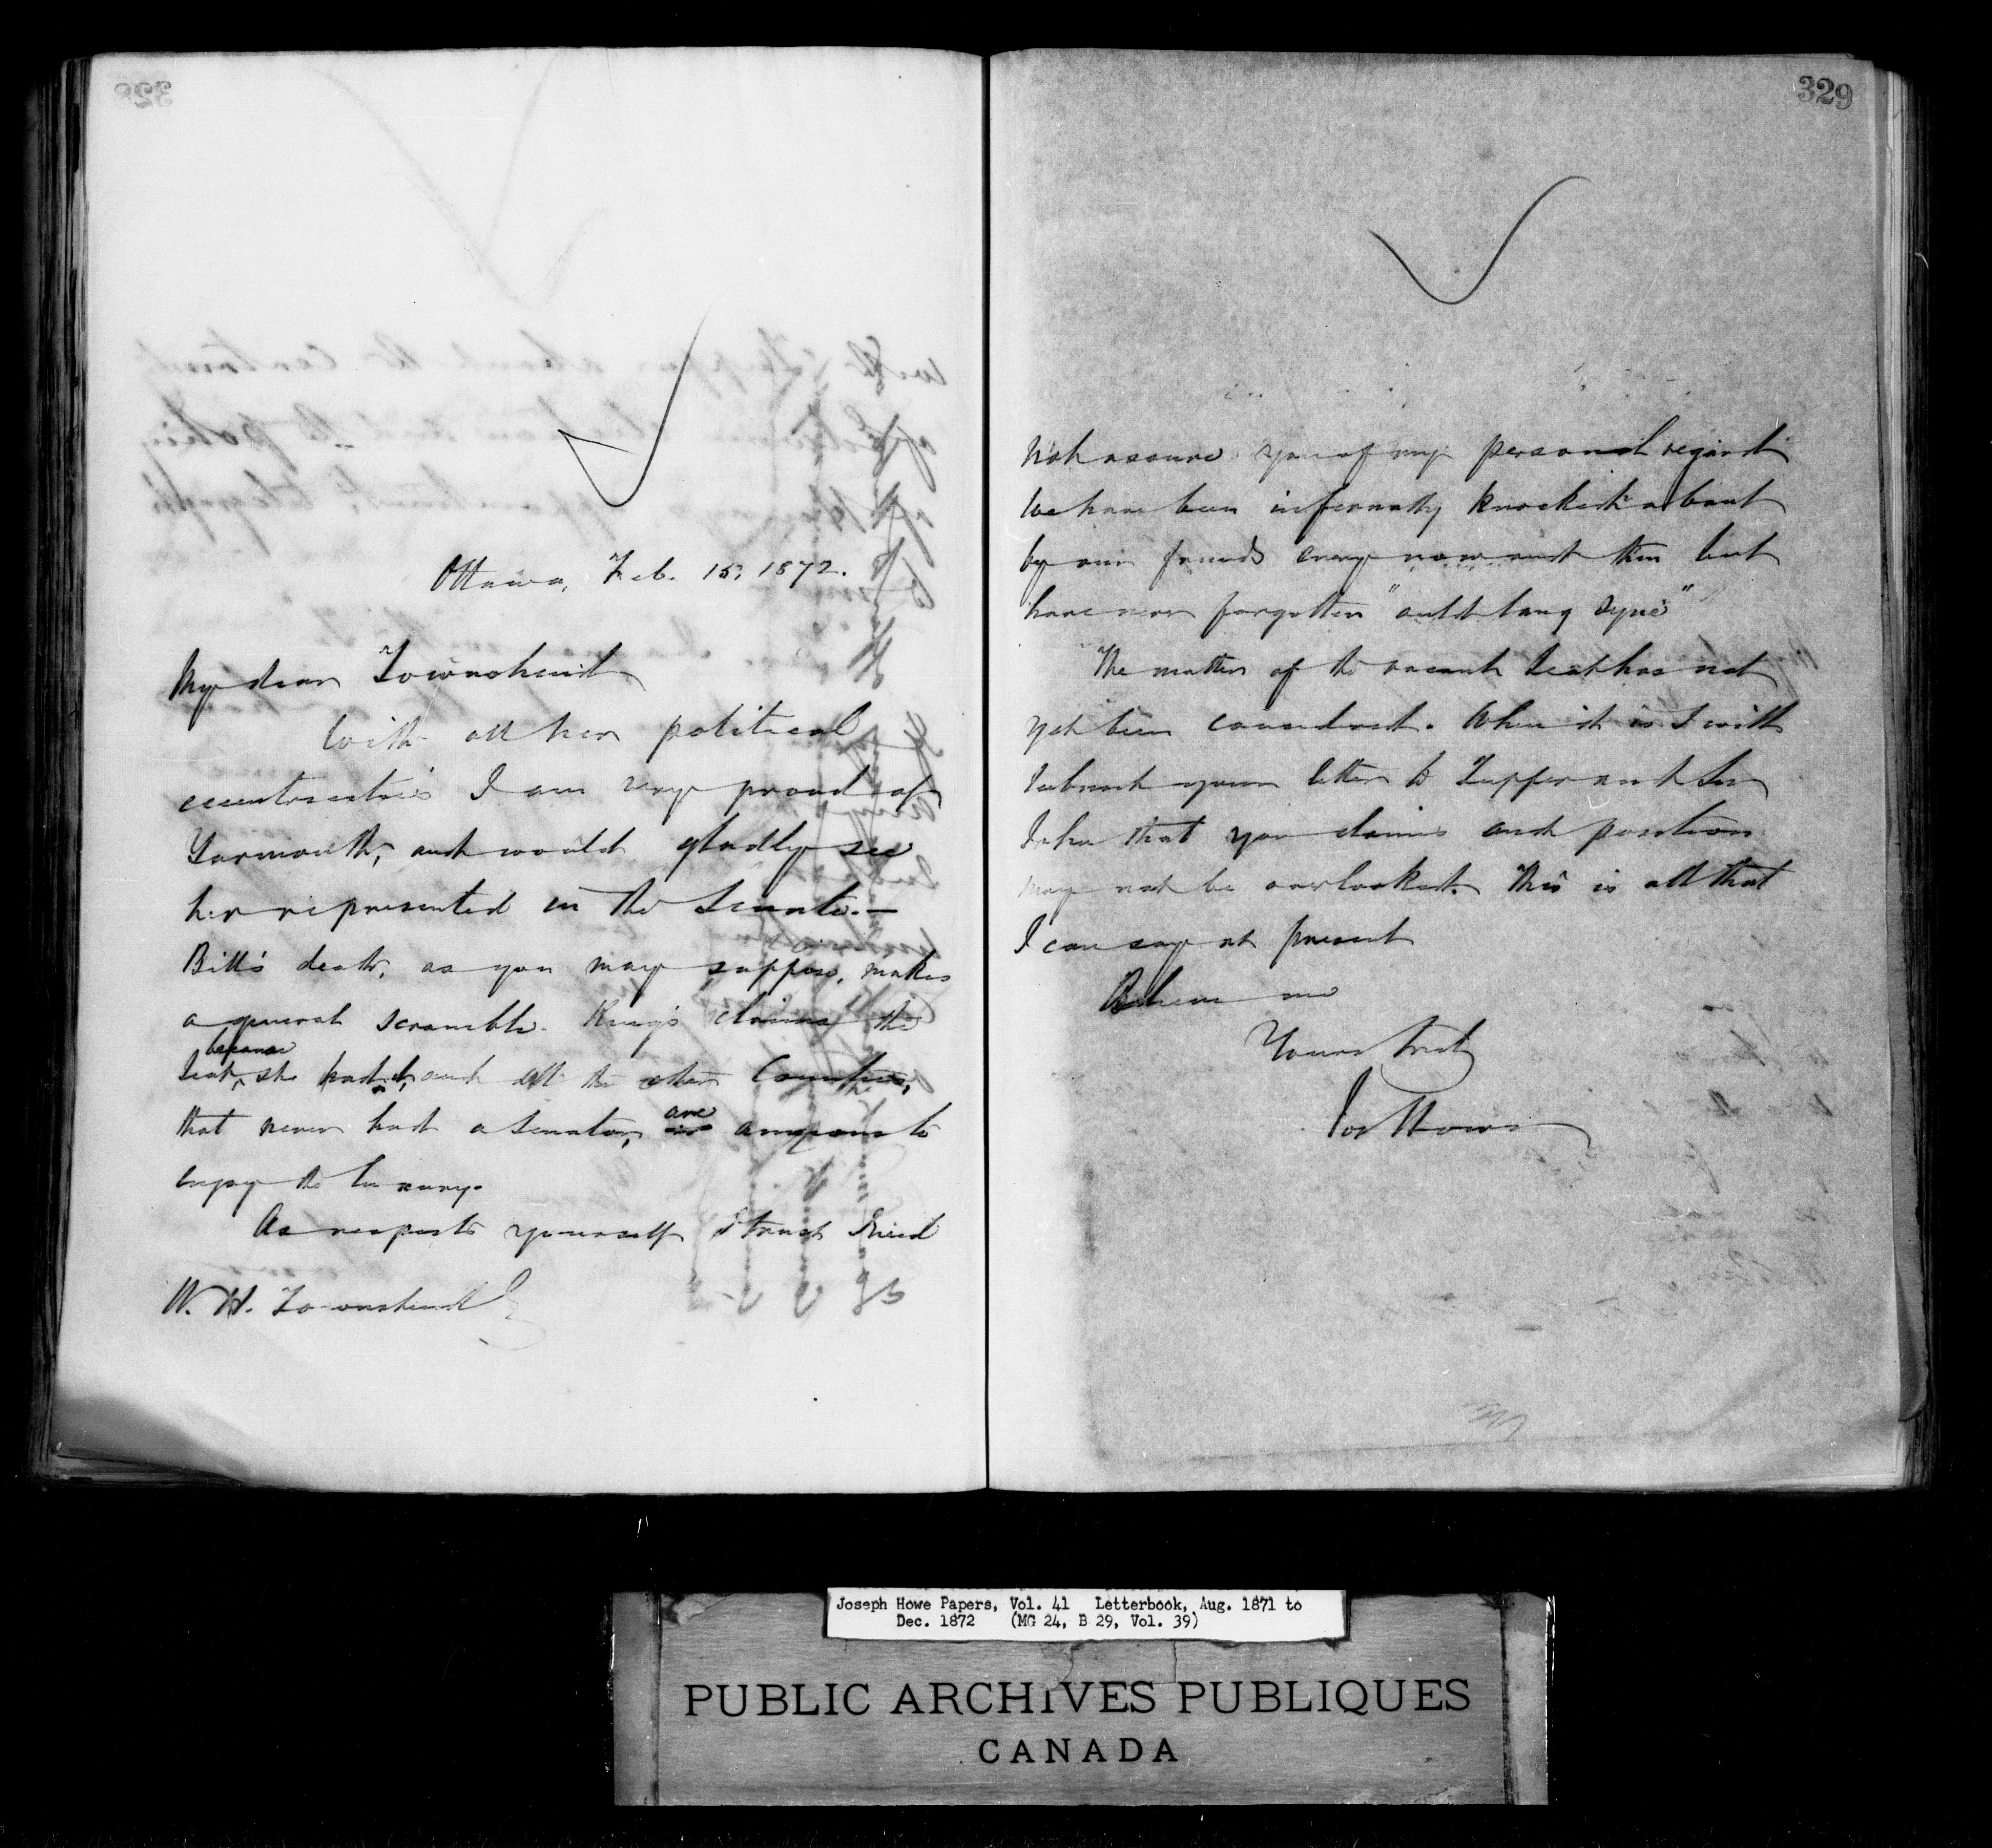 329
Ottawa, Feb. 15, 1872.
My dear Townshend
With all her political
eccentricities I am very proud of
Yarmouth, and would gladly see
her represented in the Senate.—
Bill's death, as you may suppose, makes
a general scramble. King's claims the
Seat, because she had it, and all the other Counties,
that never had a Senator, are anxious to
enjoy the luxury.
As respects yourself I trust I need
W. H. Townshend
not assure you of my personal regard
We have been infernally knocked about
by our friends every now and then but
have never forgotten "auld lang syne"
The matter of the vacant Seat has not
yet been considered. When it is I will
submit your letter to Tupper and Sir
John that your claims and position
may not be overlooked. This is all that
I can say at present
Believe me
Yours truly
Jos Howe
Joseph Howe Papers, Vol. 41 Letterbook, Aug. 1871 to
Dec. 1872 (MG 24, B 29, Vol. 39)
PUBLIC ARCHIVES PUBLIQUES
CANADA